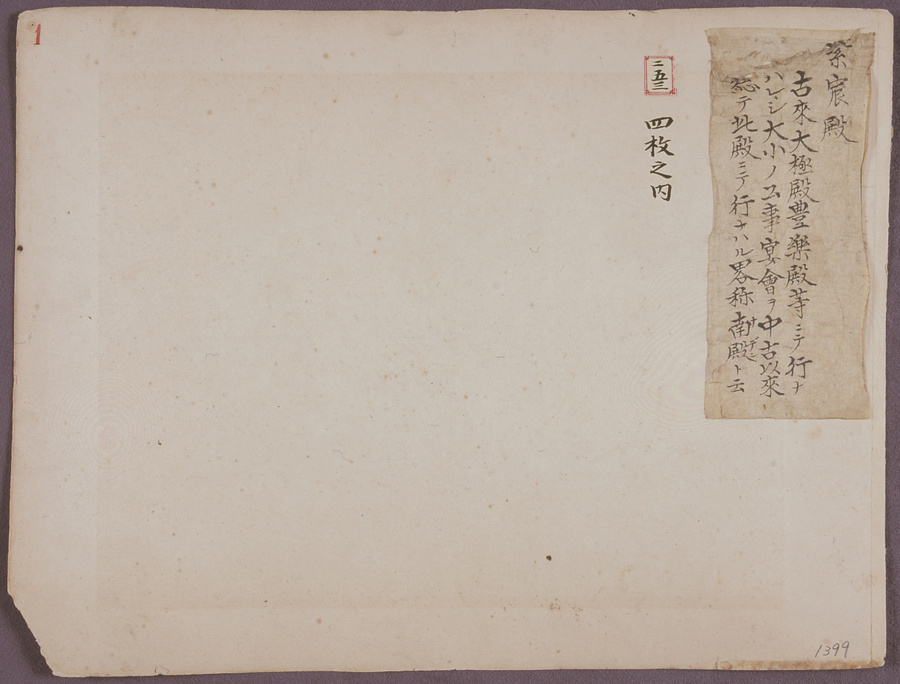 紫宸殿
古來大極殿豊樂殿等ニテ行ナ
ハレシ大小ノ公事宴會ヲ中古以來
総テ此殿ニテ行ナハル畧称南殿ナデントト云
二五三
四枚之内
1
1399